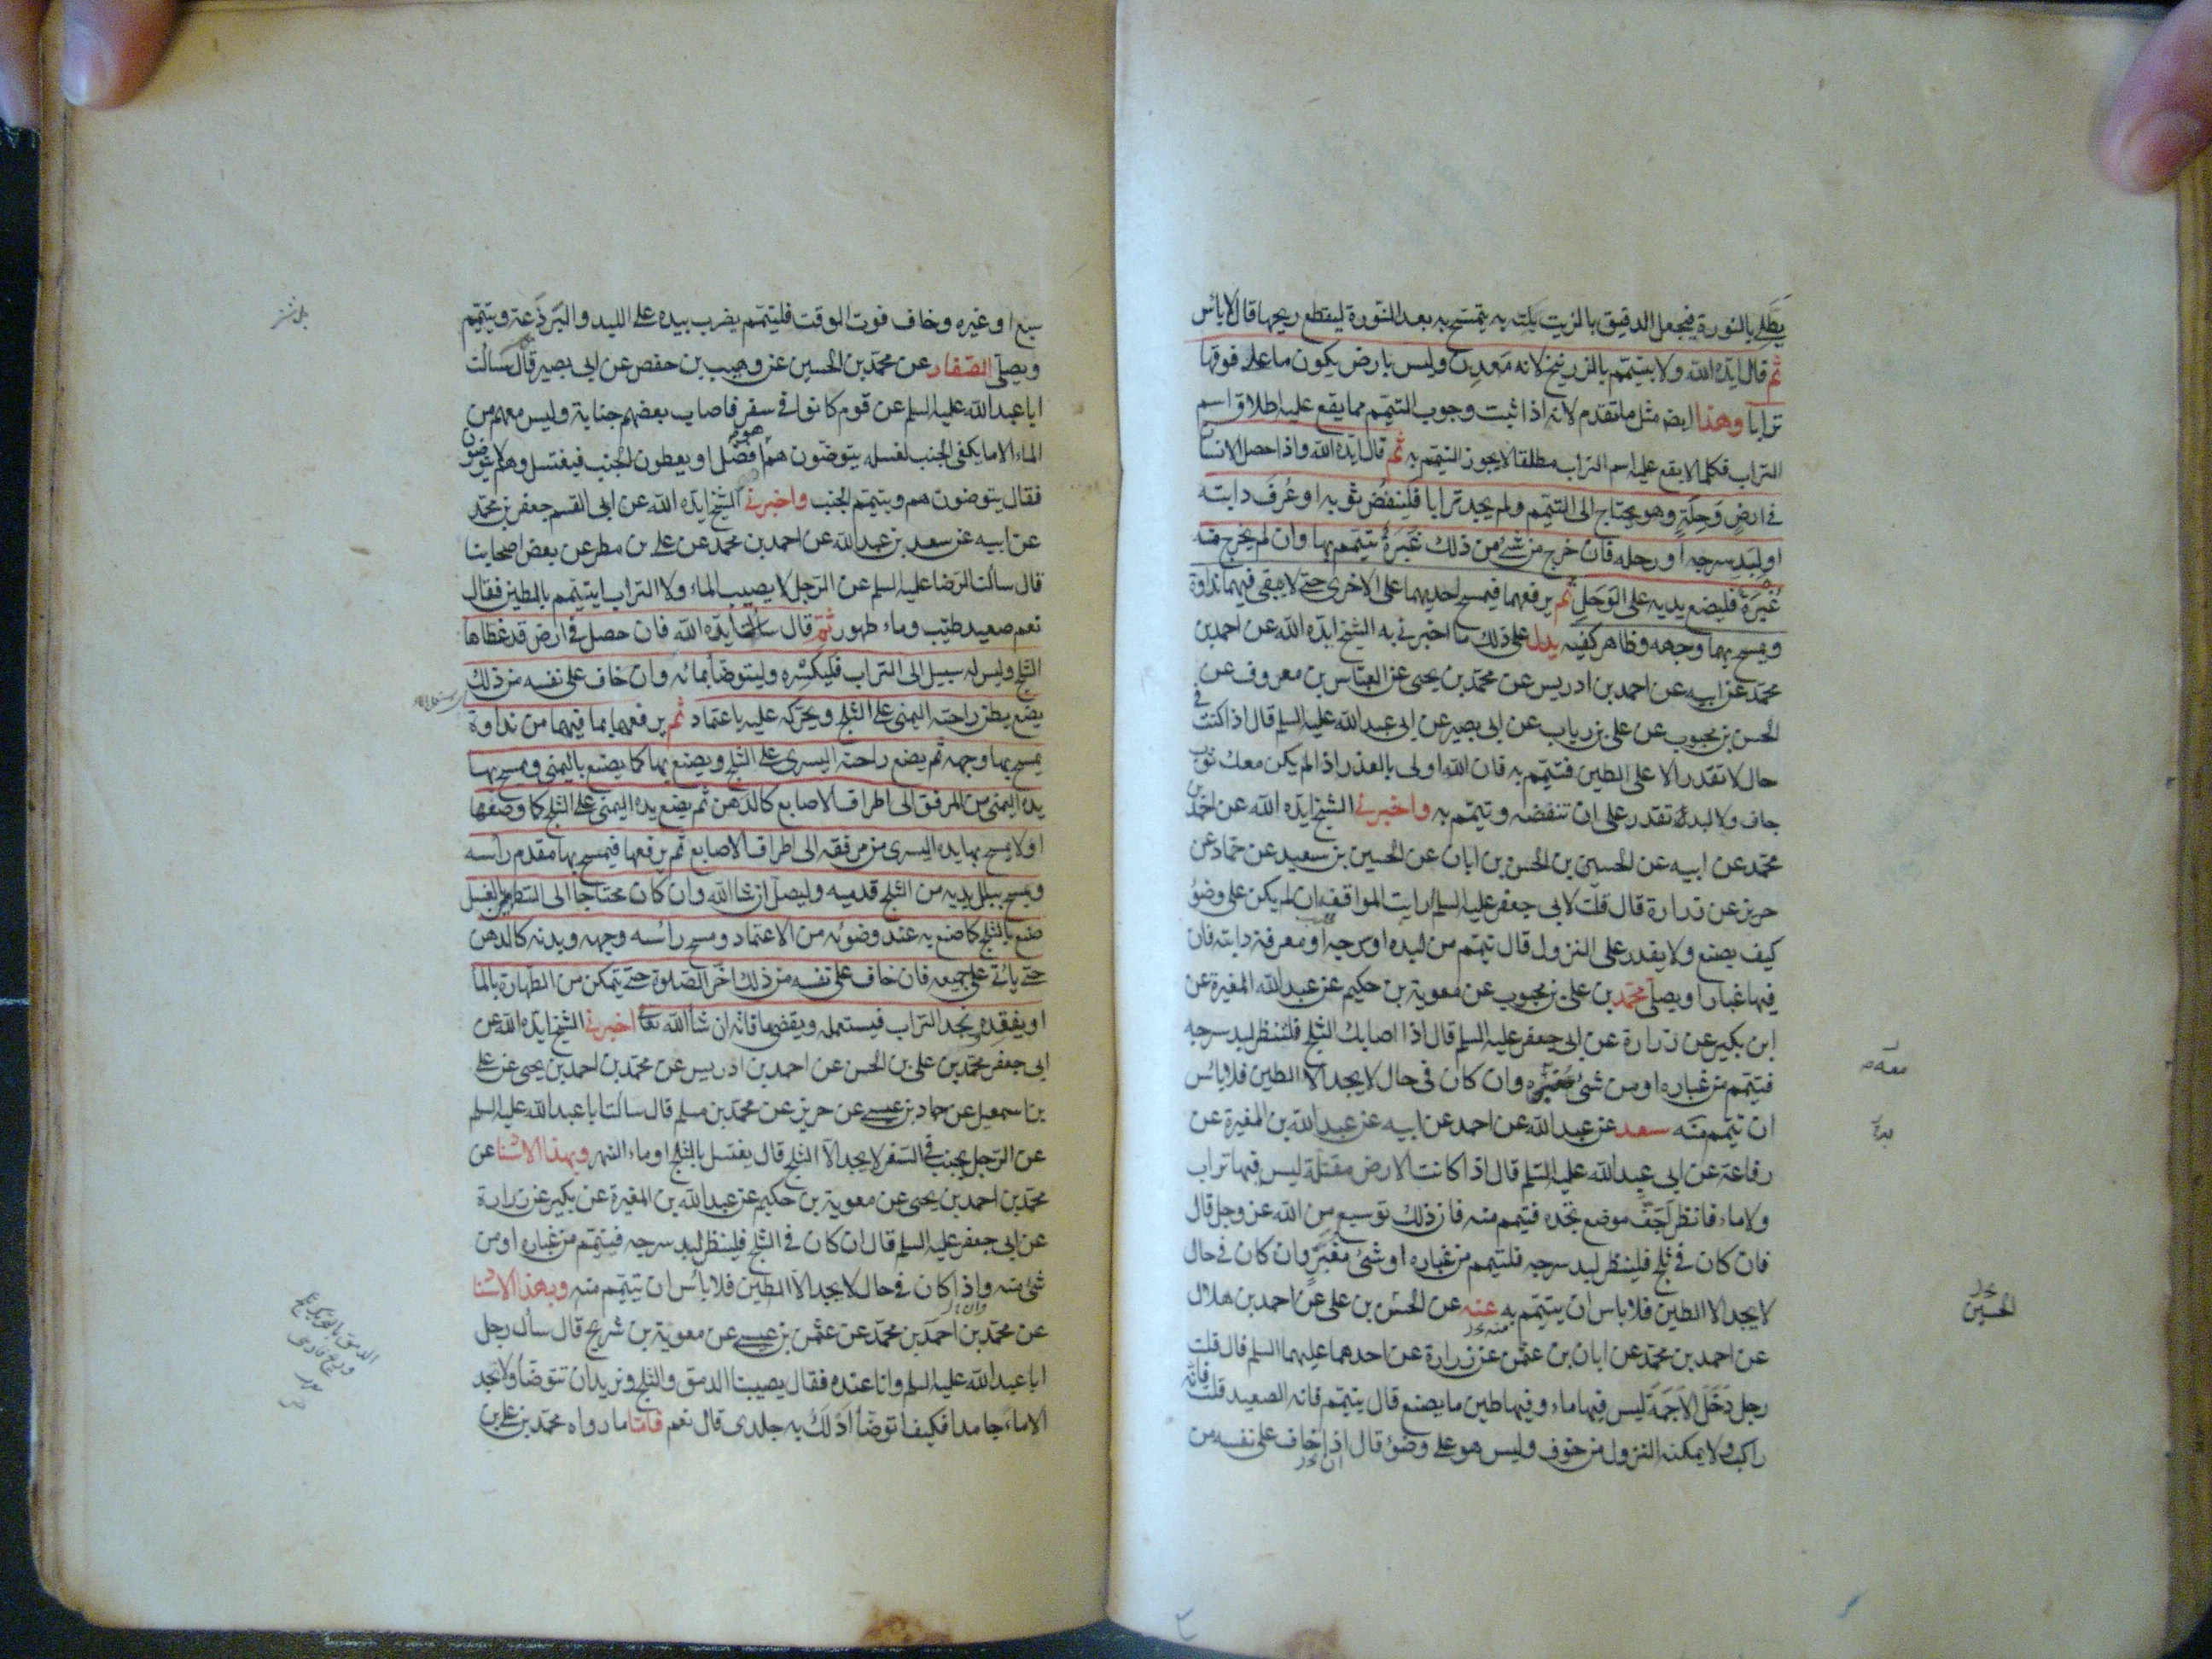 يطلى بالنورة فيجعل الدقيق بالزيت يلته به يتمسح به بعد النورة ليقطع ريحها قال لا باس
ثم قال ايده الله ولا يتيمم بالزرنيخ لانه معدن وليس بارض يكون ما على فوقها
ترابا وهذا ايض مثل ما تقدم لانه اذا ثبت وجوب التيمم مما يقع عليه اطلاق اسم
التراب فكلما لا يقع عليه اسم التراب مطلقا لا يجوز التيمم به ثم قال ايده الله واذا حصل الانسان
في ارض وحلة وهو محتاج الى التيمم ولم يجد ترابا فلينفض ثوبه او عرف دابته
او لبد سرجه او رحله فان خرج من شئ من ذلك غبرة تيمم بها وان لم يخرج منه
غبرة فليضع يديه على الوحل ثم يرفعهما فيمسح احديهما على الاخرى حتى لا يبقى فيهما نداوة
ويمسح بهما وجهه وظاهر كفيه يدل على ذلك ما اخبرني به الشيخ ايده الله عن احمد بن
محمد عن ابيه عن احمد بن ادريس عن محمد بن يحيى عن العباس بن معروف عن
الحسن بن محبوب عن على بن رياب عن ابى بصير عن ابى عبد الله عليه السلم قال اذا كنت في
حال لا تقدر الا على الطين فتيمم به فان الله اولى بالعذر اذا لم يكن معك ثوب
جاف ولا لبد تقدر على ان تنفضه وتيمم به واخبرني الشيخ ايده الله عن احمد بن
محمد عن ابيه عن الحسين بن الحسن بن ابان عن الحسين بن سعيد عن حماد عن
حريز عن زرارة قال قلت لابى جعفر عليه السلم ارايت المواقف ان لم يكن على وضوء
كيف يصنع ولا يقدر على النزول قال تيمم من لبده او سرجه او معرفة دابته فان
فيها غبارا ويصلى محمد بن على بن محبوب عن معوية بن حكيم عن عبد الله المغيرة عن
ابن بكير عن زرارة عن ابى جعفر عليه السلم قال اذا اصابك الثلج فلننظر لبد سرجه
فتيمم من غباره او من شئ مغبره وان كان في حال لا يجد الا الطين فلا باس
ان تيمم منه سعد عن عبد الله عن احمد عن ابيه عن عبد الله بن المغيرة عن
رفاعة عن ابى عبد الله عليه السلم قال اذا كانت الارض مقتلة ليس فيها تراب
ولا ماء فانظر اجف موضع تجده فتيمم منه فان ذلك توسيع من الله عز وجل قال
فان كان في ثلج فلينظر لبد سرجه فلتيمم من غباره او شئ مغبر وان كان في حال
لا يجد الا الطين فلا باس ان يتيمم به عنه عن الحسن بن على عن احمد بن هلال
عن احمد بن محمد عن ابان بن عثمن عن زرارة عن احدهما عليهما السلم قال قلت
رجل دخل الاجمة ليس فيها ماء وفيها طين ما يصنع قال يتيمم فانه الصعيد قلت فانه
راكب ولا يمكنه النزول من خوف وليس هو على وضوء قال اذا خاف على نفسه من
الحسين
سبع او غيره وخاف فوت الوقت فليتيمم يضرب بيده على اللبد والبرذعة ويتيمم
ويصلى الصفار عن محمد بن الحسين عن وهيب بن حفص عن ابى بصير قال سالت
ابا عبد الله عليه السلم عن قوم كانوا في سفر فاصاب بعضهم جنابة وليس معهم من
الماء الا ما يكفى الجنب لغسله يتوضون هم هو افضل او يعطون الجنب فيغتسل وهم لا يتوضون
فقال يتوضون هم ويتيمم الجنب واخبرني الشيخ ايده الله عن ابى القسم جعفر بن محمد
عن ابيه عن سعد بن عبد الله عن احمد بن محمد عن على بن مطر عن بعض اصحابنا
قال سالت الرضا عليه السلم عن الرجل لا يصيب الماء ولا التراب ايتيمم بالطين فقال
نعم صعيد طيب وماء طهور ثم قال ايده الله فان حصل في ارض قد غطاها
الثلج وليس له سبيل الى التراب فليكسره وليتوضا بمائه وان خاف على نفسه من ذلك
يضع بطن راحته اليمنى على الثلج ويحركه عليه باعتماد ثم يرفعها بما فيها من نداوة
يمسح بها وجهه ثم يضع راحته اليسرى على الثلج ويصنع بها كما يصنع باليمنى ويمسح بها
يده اليمنى من المرفق الى اطراف الاصابع كالدهن ثم يضع يده اليمنى على الثلج كما وضعها
اولا ويمسح بها يده اليسرى من مرفقه الى اطراف الاصابع ثم يرفعها فيمسح بها مقدم راسه
ويمسح ببلل يديه من الثلج قدميه وليصل ان شا الله وان كان محتاجا الى التطهير بالغسل
صنع بالثلج كما صنع به عند وضوئه من الاعتماد ومسح راسه وجهه وبدنه كالدهن
حتى ياتى على جميعه فان خاف على نفسه من ذلك اخر الصلوة حتى يتمكن من الطهارة بالما
او يفقده ويجد التراب فيستعمله ويقضى ما فاته ان شا الله تعالى اخبرني الشيخ ايده الله عن
ابى جعفر محمد بن على بن الحسن عن احمد بن ادريس عن محمد بن احمد بن يحيى عن على
بن اسمعيل عن حماد بن عيسى عن حريز عن محمد بن مسلم قال سالت ابا عبد الله عليه السلم
عن الرجل يجنب في السفر لا يجد الا الثلج قال يغتسل بالثلج او ماء النهر وبهذا الاسنا عن
محمد بن احمد بن يحيى عن معوية بن حكيم عن عبد الله بن المغيرة عن بكير عن زرارة
عن ابى جعفر عليه السلم قال ان كان في الثلج فلينظر لبد سرجه فتيمم من غباره او من
شئ منه واذا كان في حال لا يجد الا الطين فلا باس ان يتيمم منه وبهذا الاسنا
عن محمد بن احمد بن محمد عن عثمن بن عيسى عن معوية بن شريح قال سال رجل
ابا عبد الله عليه السلم وانا عنده فقال يصيبنا الدمق والثلج ونريدان نتوضا ولا نجد
الا ماء جامدا فكيف اتوضا ادلك به جلدى قال نعم فاما ما رواه محمد بن على بن